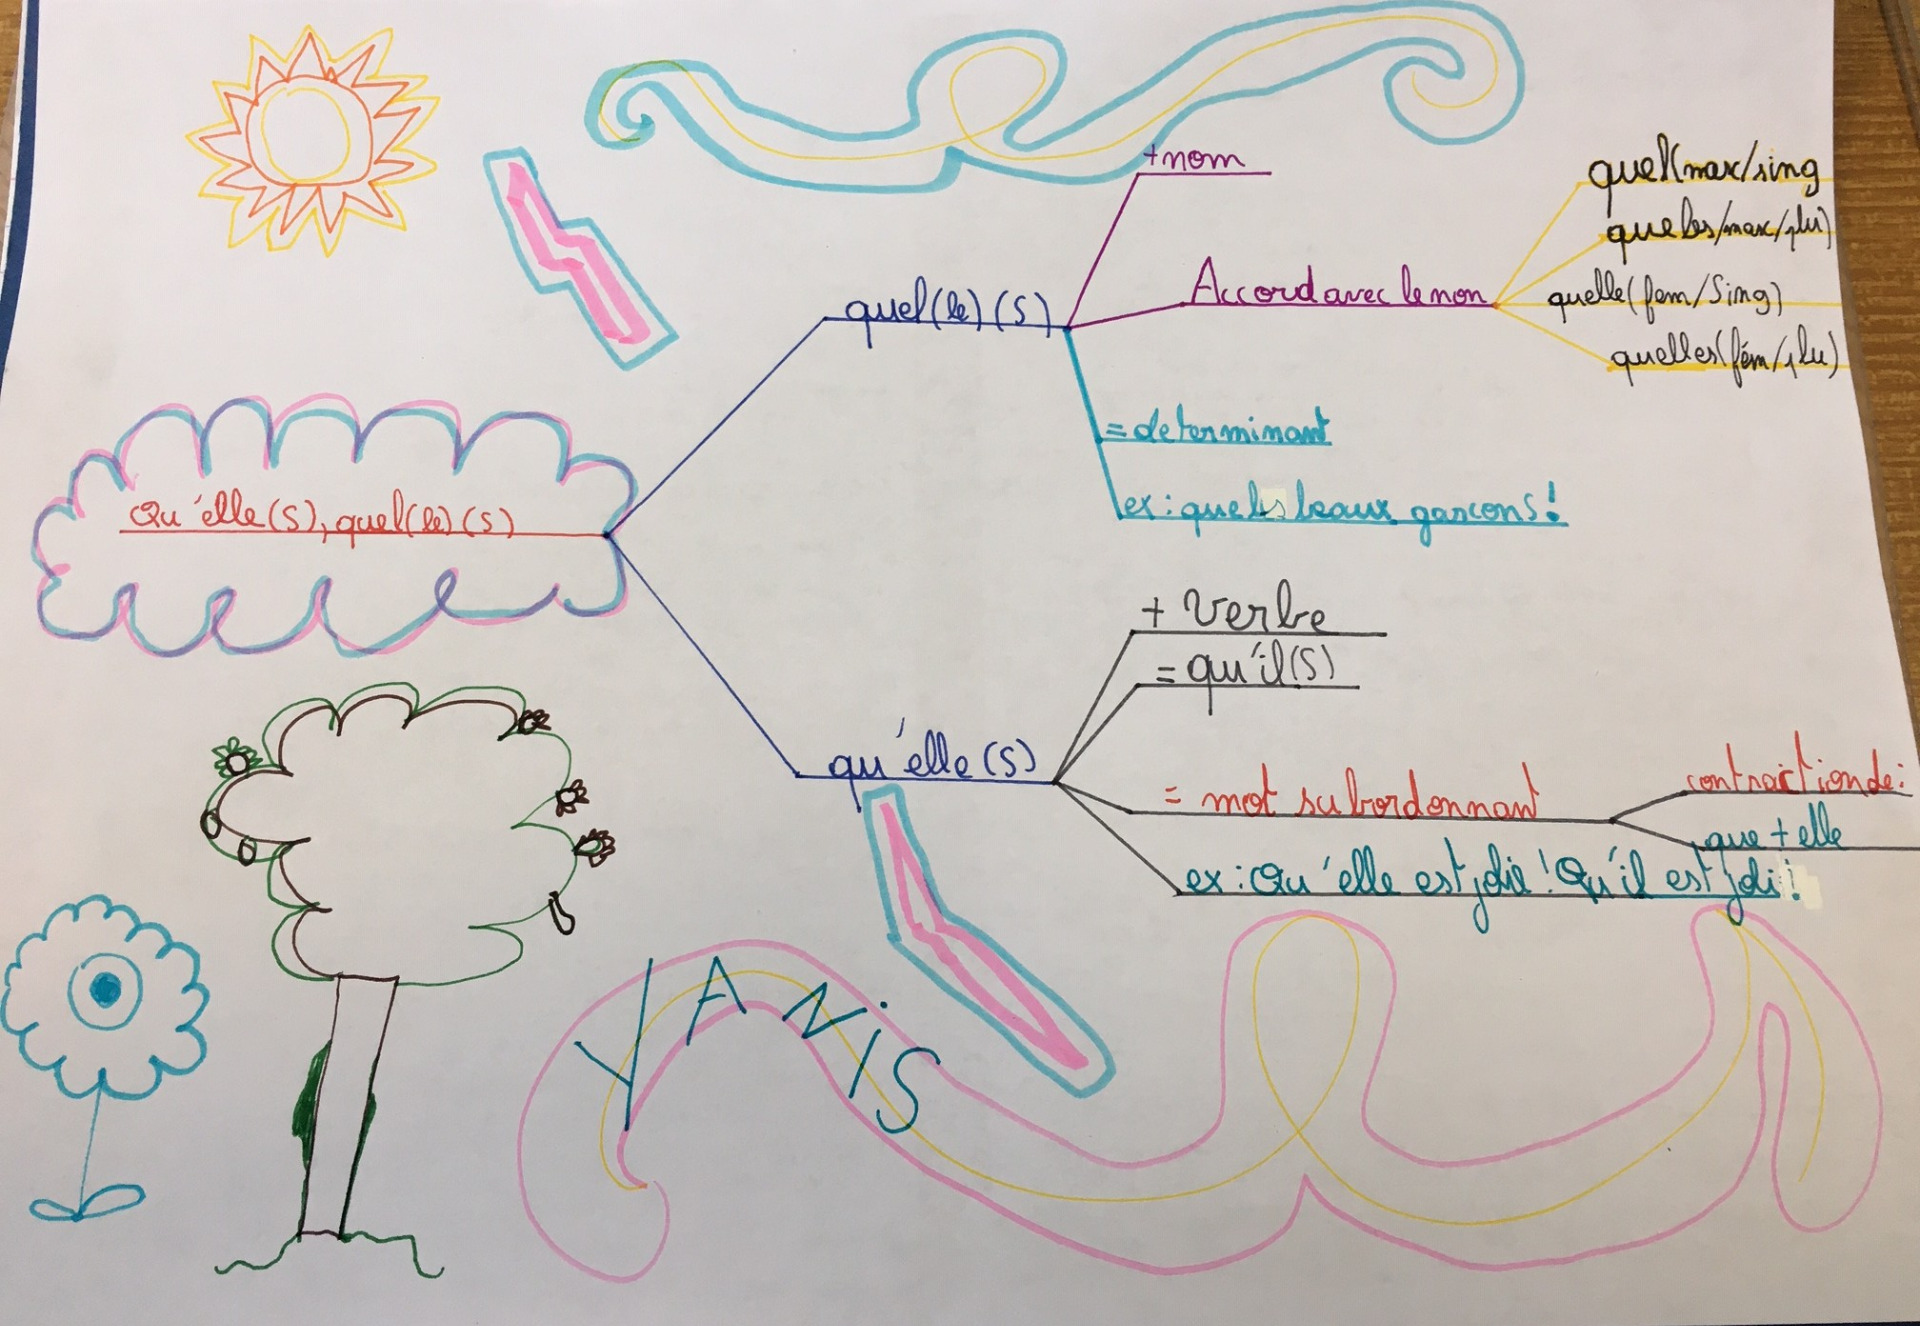 Qu'elle(s), quel(le)(s)
quel(le)(s)
+nom
Accord avec le non
quel(max/sing
quels/max/plu)
quelle(fem/Sing)
quelles(fém/plu)
= determinant
ex: quels beaux garcons!
qu'elle(s)
+ verbe
= qu'il(s)
= mot subordonnant
contraction de:
que + elle
ex: Qu'elle est jolie! Qu'il est joli!
YANiS